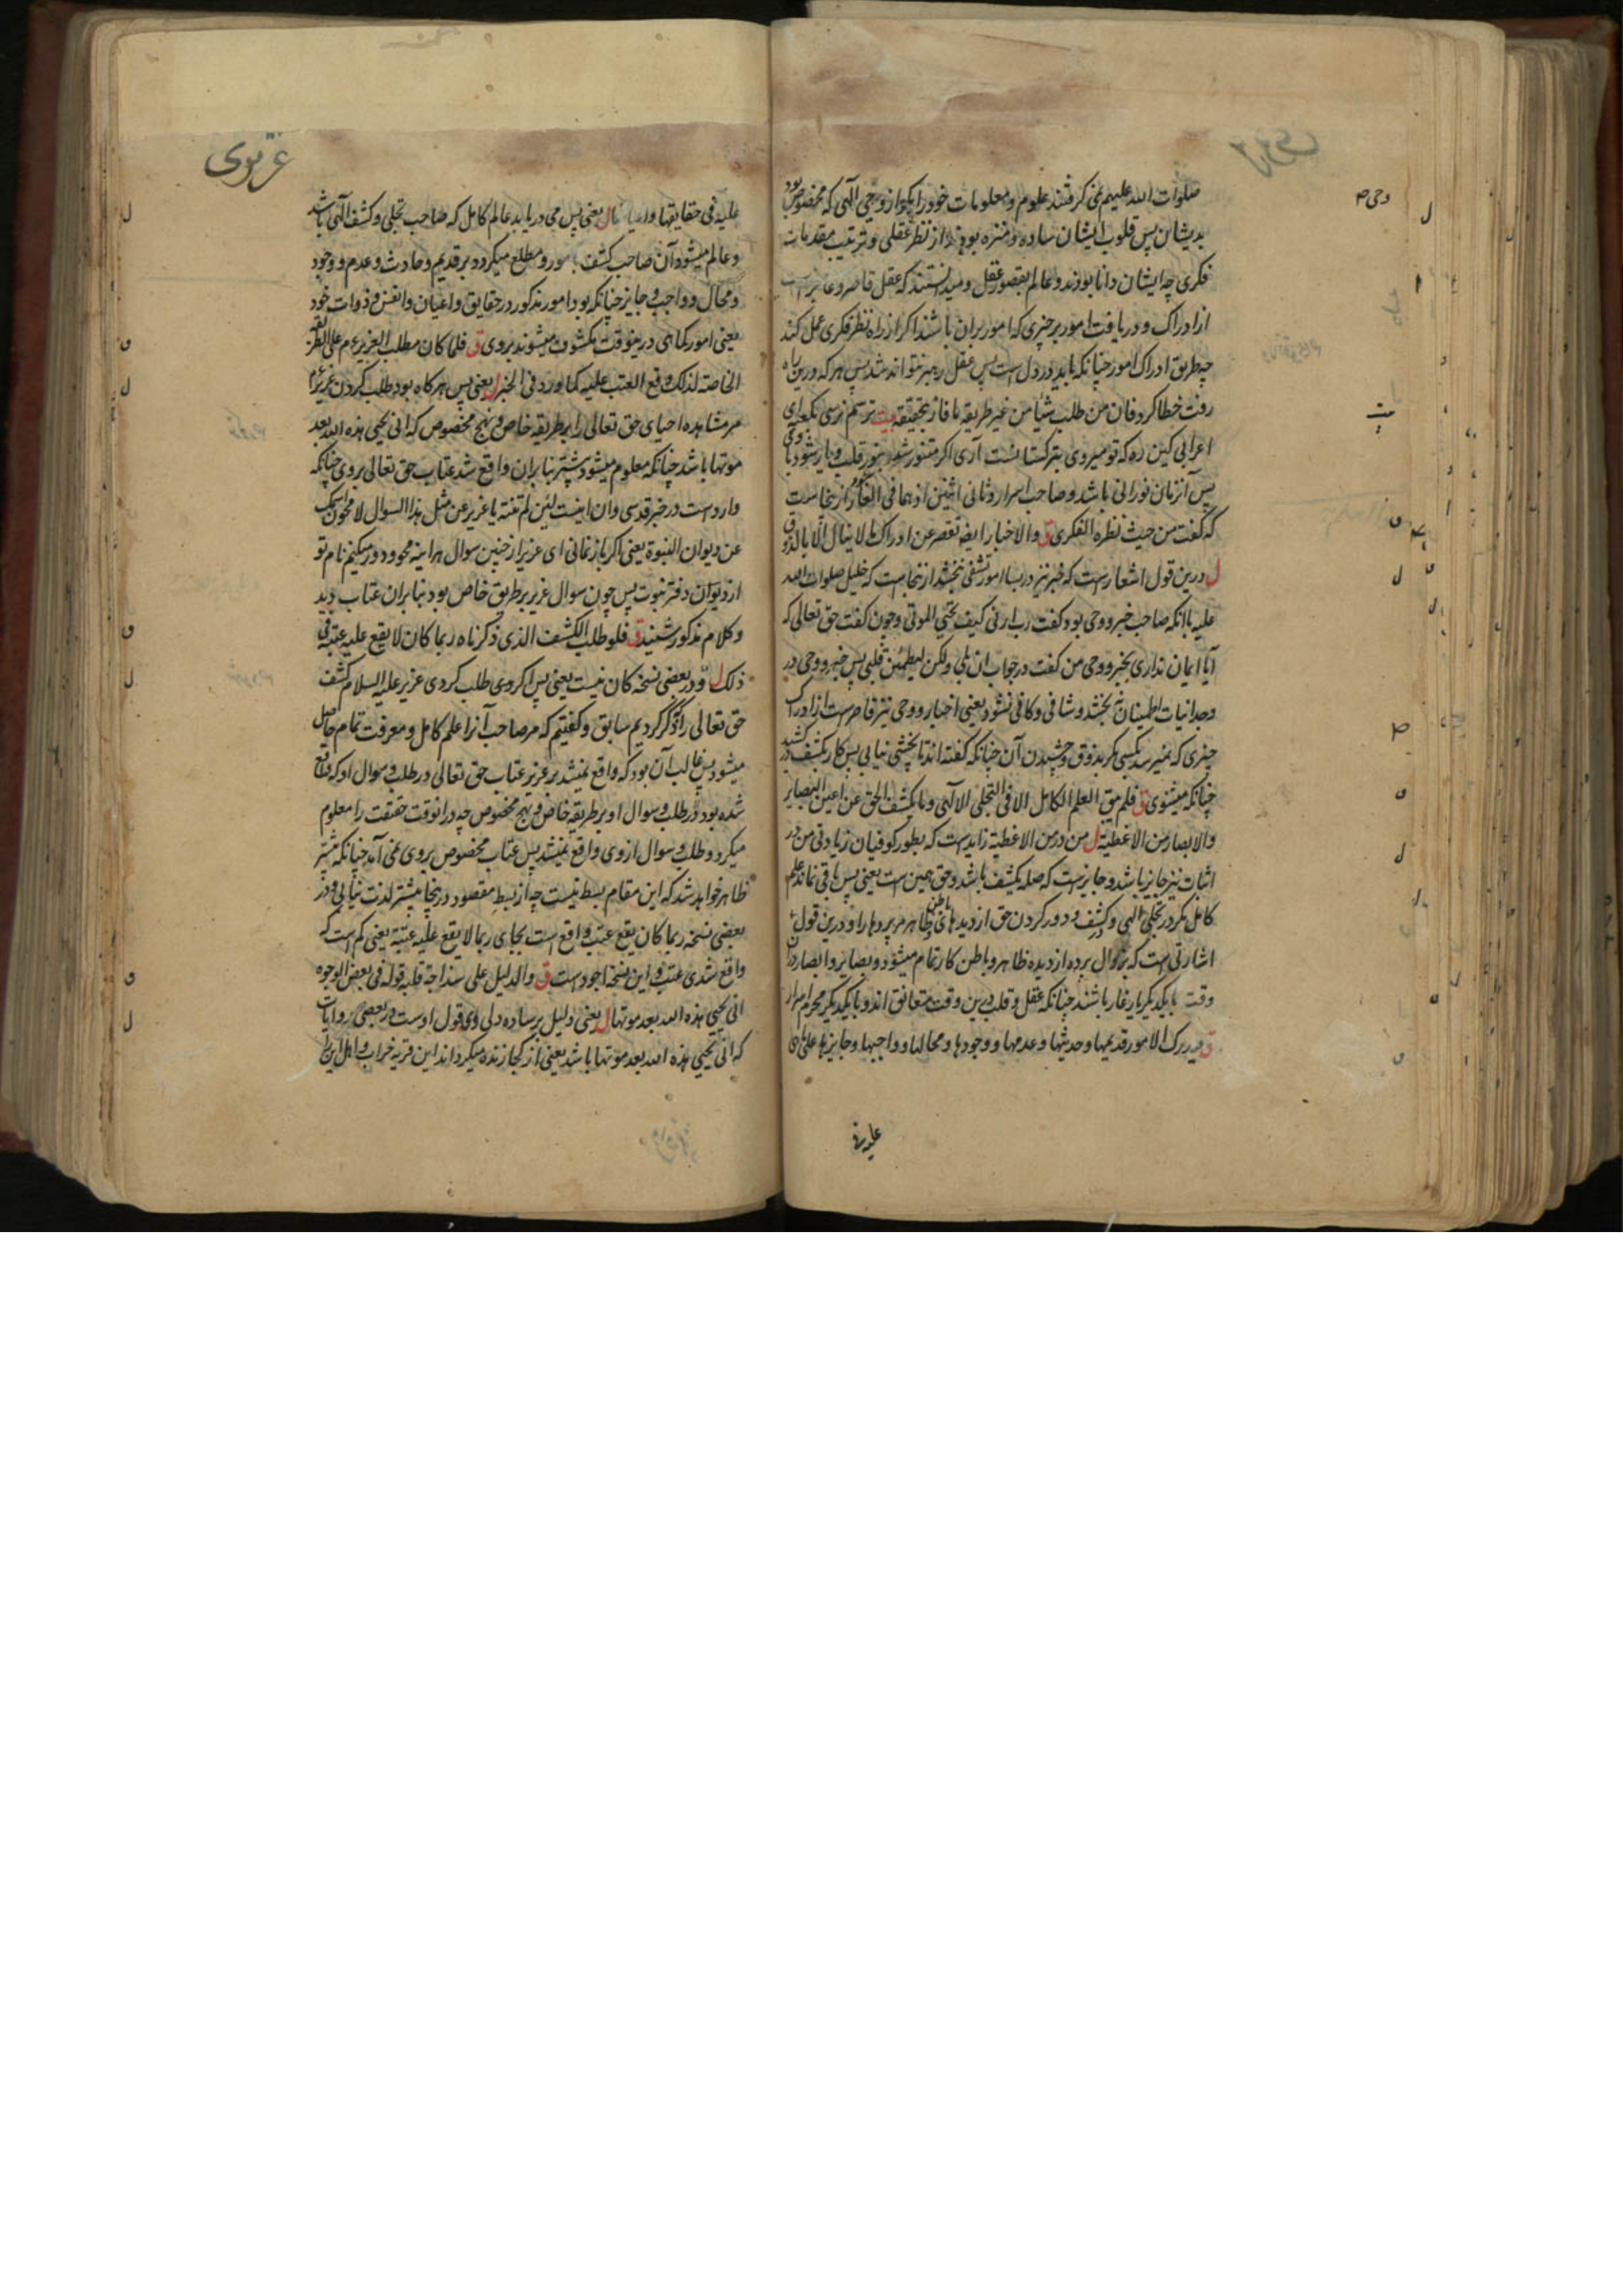 صلوات الله علیهم نمی گرفتند علوم و معلومات خود را مگر از وحی الهی که مخصوص بود
بدیشان پس قلوب ایشان ساده و منزه بودند از نظر عقلی و ترتیب مقدمات
فکری چه ایشان دانا بودند و عالم بقصور عقل و میدانستند که عقل قاصر و عاجز است
از ادراک و دریافت امور بر چیزی که امور بران باشند اگر از راه نظر فکری عمل کند
چه طریق ادراک امور چنانکه باید در دل است پس عقل رهبر نتواند شد پس هر که درین راه
رفت خطا کرد فان من طلب شیأ من غیر طریقه ما فاز بتحقیقه بیت ترسم نرسی بکعبه ای
اعرابی کین ره که تو میروی بترکستانست آری اگر متنور شود بنور قلب و یار شود با وی
پس آنزمان نورانی باشد و صاحب اسرار و ثانی اثنین اذ هما فی الغار و ازینجاست
که گفت من حیث نظره الفکری ق والاخبار ایضا تقصر عن ادراک ما لا ینال الا بالذوق
ل درین قول اشعار است که خبر نیز در بسا امور تشفی نبخشد ازینجا است که خلیل صلوات الله
علیه باانکه صاحب خبر و وحی بود گفت رب ارنی کیف تحیی الموتی و چون گفت حق تعالی که
آیا ایمان نداری بخبر و وحی من گفت در جواب ان بلی ولکن لیطمئن قلبی پس خبر و وحی در
وجدانیات اطمینان نبخشد و شافی و کافی نشود یعنی اخبار و وحی نیز قاصر است از ادراک
چیزی که نمیرسد بکسی مگر بذوق و چشیدن آن چنانکه گفته اند تا نچشی نیابی پس کار بکشف در کشید
چنانکه میشنوی ق فلم یبق العلم الکامل الا فی التجلی الالهی و ما یکشف الحق عن اعین البصایر
والابصار من الاغطیة ل من در من الاغطیة زاید است که بطور کوفیان زیادتی من در
اثبات نیز جایز باشد و جایز است که صله یکشف باشد و حق همین است یعنی پس باقی نماند علم
کامل مگر در تجلی الهی و کشف و دور کردن حق از دیدهای باطن و ظاهر مر پردها را و درین قول
اشارتی است که بزوال پرده از دیده ظاهر و باطن کار تمام میشود و بصایر و ابصار دران
وقت بایکدیگر یار غار باشند چنانکه عقل و قلب درین وقت متعانق اند و بایکدیگر محرم اسرار
ق فیدرک الامور قدیمها و حدیثها و عدمها و وجودها و محالها و واجبها و جایزها علی ما هی
علیه فی
وحی
بیت
عزیری
علیه فی حقایقها و اعیانها ل یعنی پس می دریابد عالم کامل که صاحب تجلی و کشف الهی باشد
و عالم میشود آن صاحب کشف بامور و مطلع میگردد بر قدیم و حادث و عدم و وجود
و محال و واجب و جایز چنانکه بود امور مذکور در حقایق و اعیان و انفس و ذوات خود
یعنی امور کماهی درینوقت مکشوف میشوند بروی ق فلما کان مطلب العزیر ع م علی الطریقه
الخاصة لذلک وقع العتب علیه کما ورد فی الخبر ل یعنی پس هرگاه بود طلب کردن عزیر ع م
مر مشاهده احیای حق تعالی را بر طریقه خاص و نهج مخصوص که انی یحیی هذه الله بعد
موتها باشد چنانکه معلوم میشود پیشتر بنابران واقع شد عتاب حق تعالی بروی چنانکه
وارد است در خبر قدسی وان اینست لئن لم تنته یا عزیر عن مثل هذا السوال لامحون اسمک
عن دیوان النبوة یعنی اگر باز نمانی ای عزیر از چنین سوال هر اینه محو و دور میکنیم نام تو
از دیوان دفتر نبوت پس چون سوال عزیر بر طریق خاص بود بنابران عتاب دید
و کلام مذکور شنید ق فلو طلب الکشف الذی ذکرناه ربما کان لا یقع علیه عتب فی
ذلک ل و در بعضی نسخه کان نیست یعنی پس اگر وی طلب کردی عزیر علیه السلام کشف
حق تعالی را که ذکر کردیم سابق و گفتیم که مر صاحب آنرا علم کامل و معرفت تمام حاصل
میشود پس غالب آن بود که واقع نمیشد بر عزیر عتاب حق تعالی در طلب و سوال او که واقع
شده بود در طلب و سوال او بر طریقه خاص و نهج مخصوص چه درانوقت حقیقت را معلوم
میکرد و طلب و سوال از وی واقع نمیشد پس عتاب مخصوص بروی نمی آمد چنانکه پیشتر
ظاهر خواهد شد که این مقام بسط نیست چه از بسط مقصود درینجا پیشتر لذت نیابی و در
بعضی نسخه ربما کان یقع عتب واقع است بجای ربما لا یقع علیه عتبه یعنی کم است که
واقع شدی عتب و این نسخه اجود است ق والدلیل علی سذاجة قلبه قوله فی بعض الوجوه
انی یحیی هذه الله بعد موتها ل یعنی دلیل بر ساده دلی وی قول اوست در بعضی روایات
که انی یحیی هذه الله بعد موتها باشد یعنی از کجا زنده میگرداند این قریه خراب و اهل این را